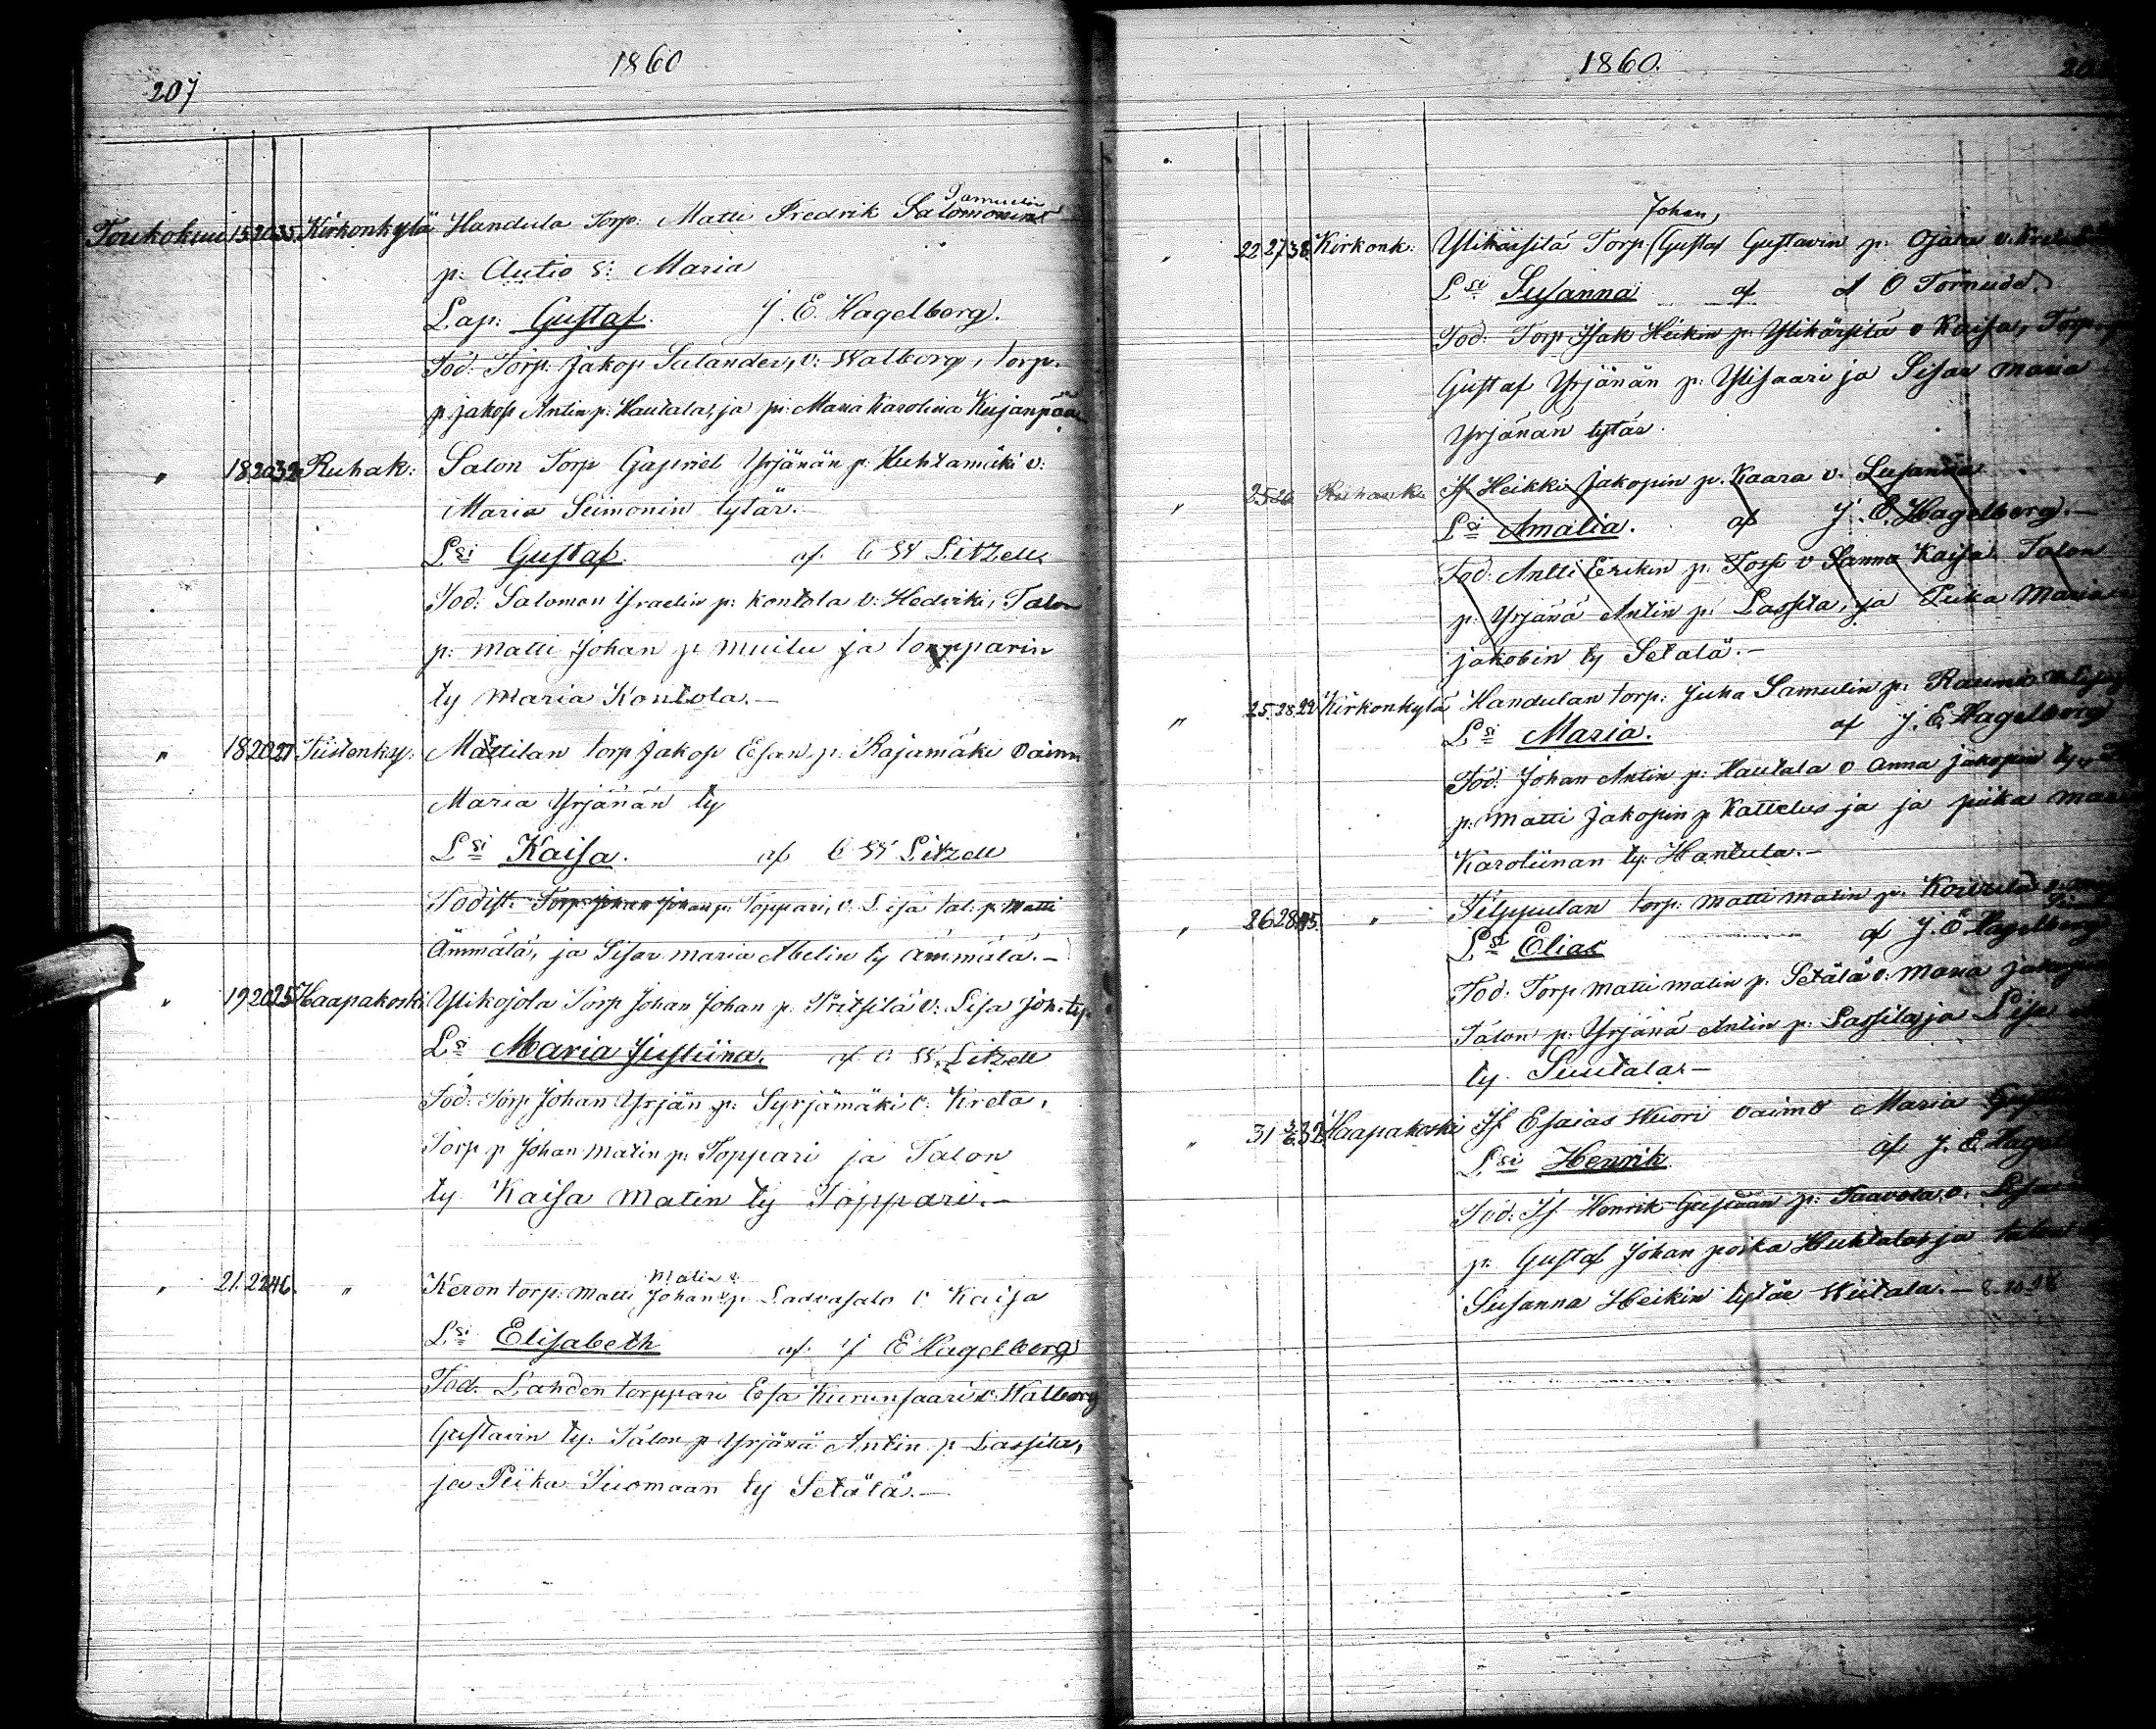 207
1860
Toukokuu 15 20 35. Kirkonkylä Handula Torp. Matti Fredrik Salomonint Samuelin
p: Autio v: Maria
Lap: Gustaf. J. E. Hagelberg.
Tod: Torp. Jakop Sulander, v: Walborg, torp.
p. jakop Antin p: Hautala, ja pi: Maria Karolina Kujanpää
" 18 20 32 Ruhak: Salon Torp Gabriel Yrjänän p: Huhtamäki v:
Maria Siimonin tytär.
Lsi Gustaf. af C W Litzell.
Tod: Salomon Israelin p: Kontola v: Hedviki, Talon
p: matti Johan p muilu ja torpparin
ty maria Kontola.-
" 18 20 27 Tiistenky: Mattilan torp Jakop Esan p: Rajamäki vaimo
Maria Yrjänän ty
Lsi Kaisa. af C W Litzell
Todist: Torp: Johan Johan p: Toppari, v: Lisa tal: p: Matti
Ämmälä, ja Sisar maria Abelin ty ämmälä.-
" 19 20 25 Haapakoski Ylikojola Torp Johan Johan p: Pritsilä v: Lisa Joh: ty.
Lsi Maria Justiina. af C W. Litzell
Tod: Torp Johan Yrjän p: Syrjämäki v: Kreta,
Torp p Johan matin p: Toppari ja Talon
ty Kaisa matin ty Toppari.-
" 21. 22 46. " Keron torp: matti Johan matin p. Ladvasalo v Kaisa
Lsi Elisabeth af J E Hagelberg
Tod. Lahden torppari Esa Kurunsaari v: Walborg
Gustavin ty: Talon p Yrjänä Antin p Lassila,
ja Piika Tuomaan ty Setälä.-
1860.
" 22 27 38 Kirkonk: Ylikärsilä Torp. Johan, Gustaf Gustavin p: Ojala v.
Lsi Susanna af A O Törnudd.
Tod: Torp Isak Heikin p: Ylikärsilä v Kaisa, Torp.
Gustaf Yrjänän p: Ylisaari ja Sisar maria
Yrjänän tytär.
" 25 26 Ruhank: If Heikki Jakopin p. Kaara v. Susanna
Lsi Amalia. af J. E. Hagelberg.-
Tod: Antti Erikin p: v Sanna Kaisa Talon
p: Yrjänä Antin p: Lassila, ja Piika Maria
jakobin ty Setälä.-
" 25. 28 22 Kirkonkylä Handulan torp: Juha Samulin p: Raunio
Lsi Maria. af J. E Hagelberg
Tod: Johan Antin p: Hautala v anna jakopin ty,
p: matti Jakopin p Kattelus ja ja piika
Karoliinan ty: Hantula.-
" 26. 28 45. " Filppulan torp: matti matin p:
Lsi Elias af J. E Hagelberg
Tod: Torp matti matin p: Setälä v: maria jakopin
Talon p: Yrjänä Antin p: Lassila, ja Lisa
ty. Luutala.-
" 31 3/6 32 Haapakoski If Esaias Wuori vaimo Maria
Lsi Henrik af J. E.
Tod: If Henrik Gustaan p: Taavola, v. Lisa
p: Gustaf Johan poika Huhtala, ja talon
Susanna Heikin tytär Wiitala.- 8.10.28